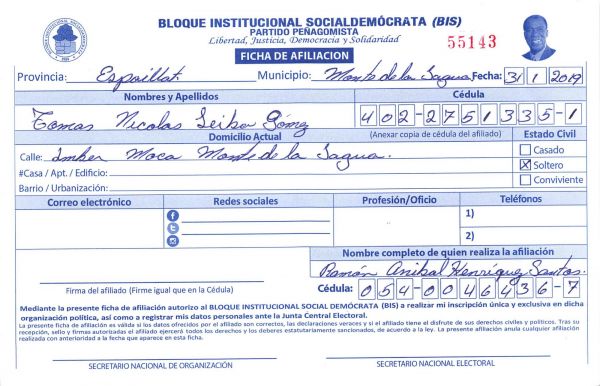 BLOQUE INSTITUCIONAL SOCIALDEMÓCRATA (BIS)
PARTIDO PEÑAGOMISTA
Libertad, Justicia, Democracia y Solidaridad
55143
FICHA DE AFILIACION
Provincia: Espaillat Municipio: Monte de la Jagua Fecha: 3/1/2019
Nombres y Apellidos Cédula
Tomas Nicolas Leiba Gómez 402-2751335-1
Domicilio Actual (Anexar copia de cédula del afiliado) Estado Civil
Calle: Imber Moca Monte de la Jagua. Casado
#Casa / Apt. / Edificio: X Soltero
Barrio / Urbanización: Conviviente
Correo electrónico Redes sociales Profesión/Oficio Teléfonos
1)
2)
Nombre completo de quien realiza la afiliación
Ramón Anibal Henríquez Santos.
Firma del afiliado (Firme igual que en la Cédula) Cédula: 054-0046436-7
Mediante la presente ficha de afiliación autorizo al BLOQUE INSTITUCIONAL SOCIAL DEMÓCRATA (BIS) a realizar mi inscripción única y exclusiva en dicha
organización política, así como a registrar mis datos personales ante la Junta Central Electoral.
La presente ficha de afiliación es válida si los datos ofrecidos por el afiliado son correctos, las declaraciones veraces y si el afiliado tiene el disfrute de sus derechos civiles y políticos. Tras su
recepción, sello y firmas autorizadas el afiliado ejercerá todos los derechos y los deberes estatutariamente sancionados, de acuerdo a la ley. La presente afiliación anula cualquier afiliación
realizada con anterioridad a la fecha que aparece en esta ficha.
SECRETARIO NACIONAL DE ORGANIZACIÓN SECRETARIO NACIONAL ELECTORAL